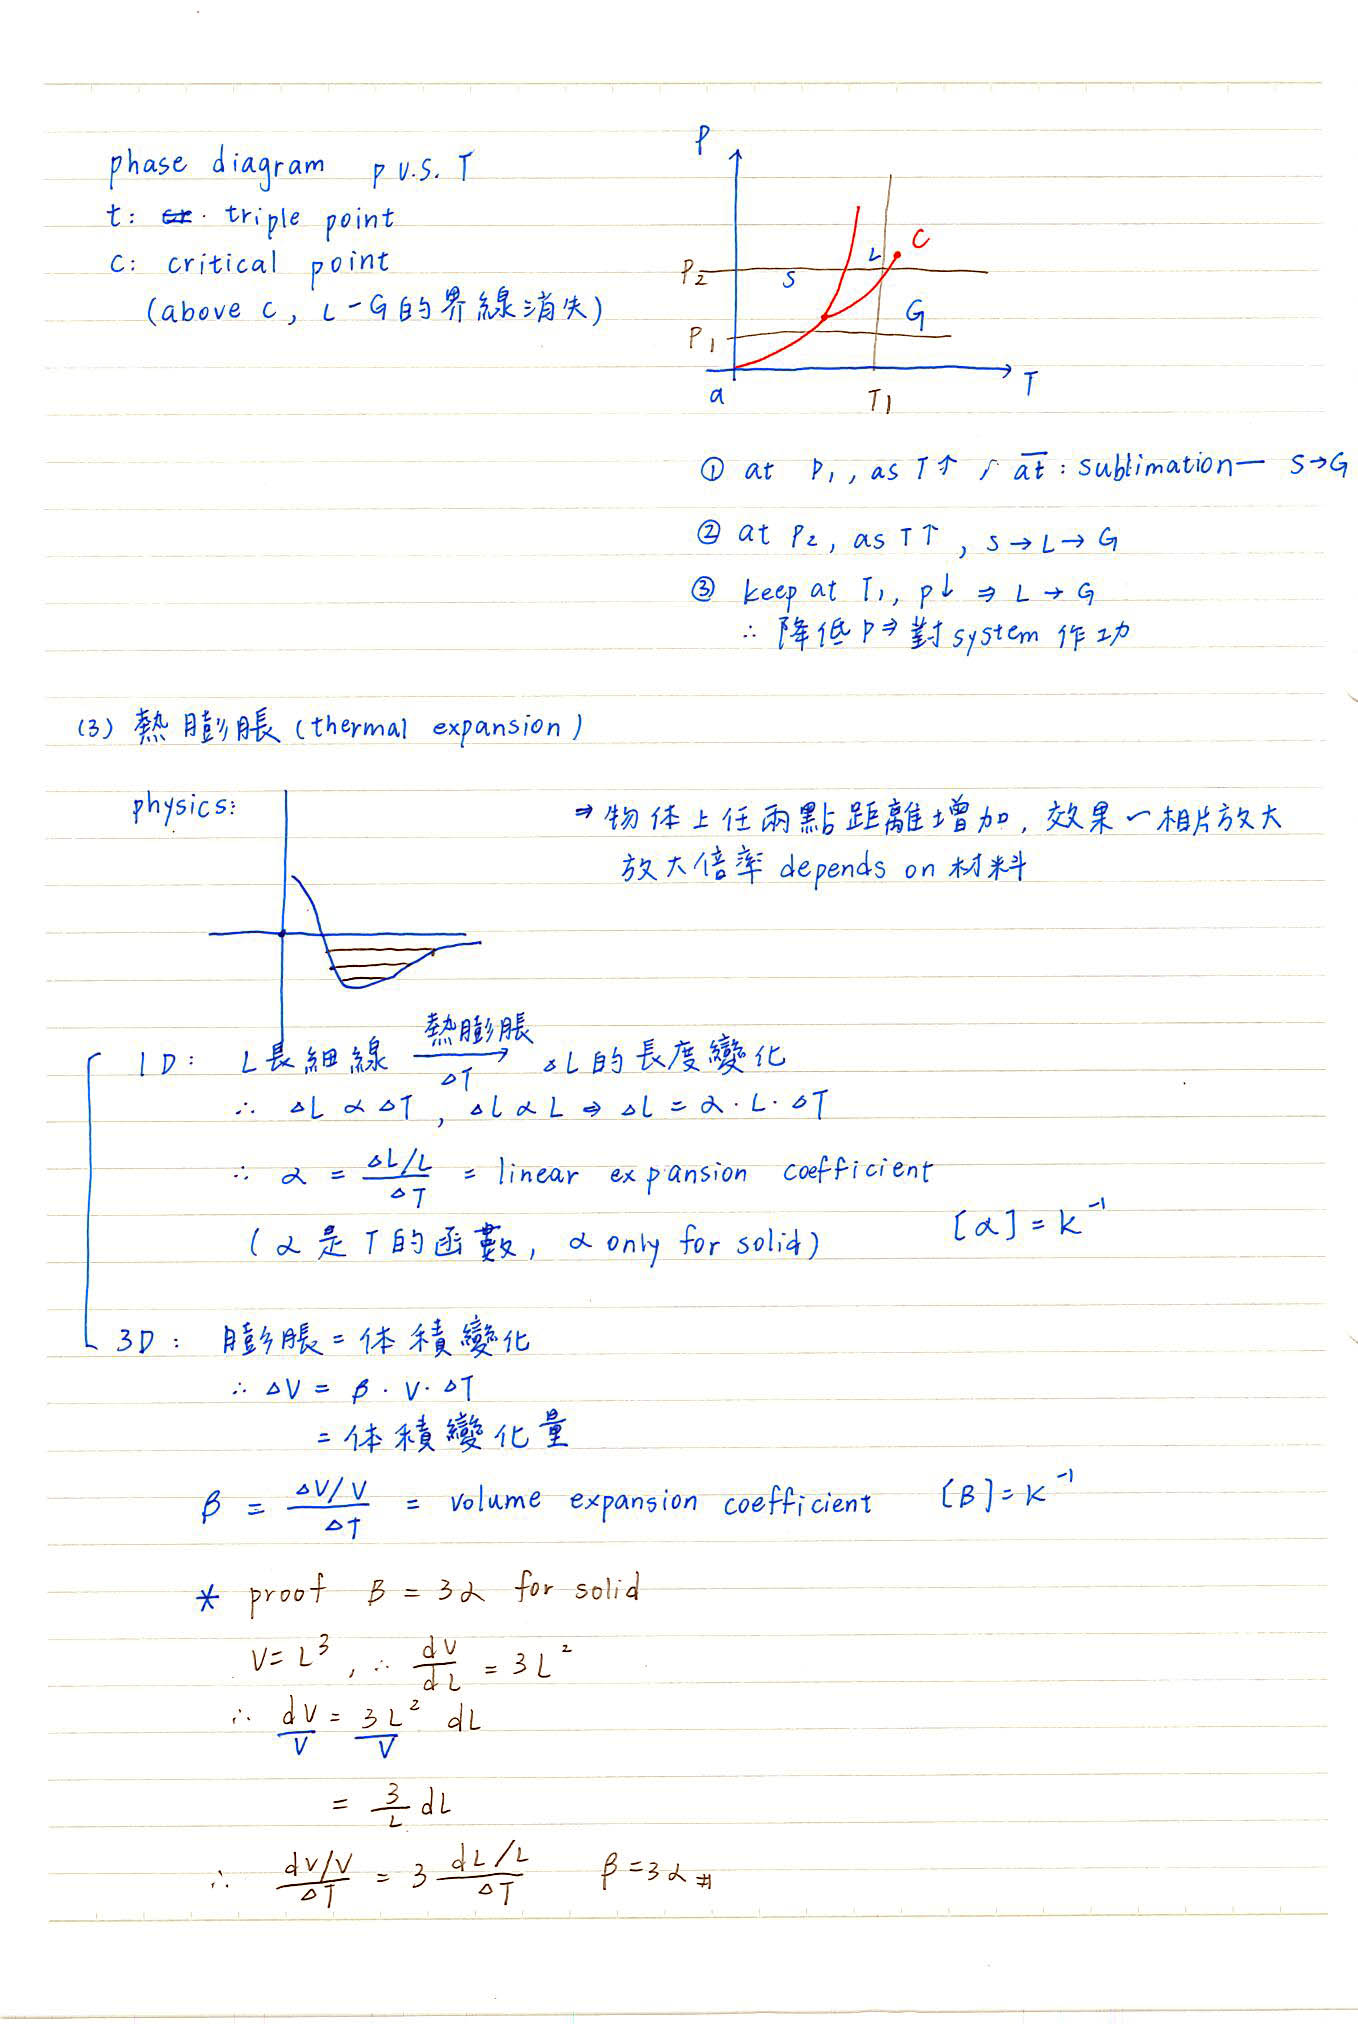 phase diagram p v.s. T
t: triple point
c: critical point
(above c, L-G的界線消失)
P
C
P2
S
L
G
P1
a
T1
T
① at P1, as T↑, at : sublimation — S→G
② at P2, as T↑, S→L→G
③ keep at T1, p↓ ⇒ L→G
∴ 降低P⇒對system作功
(3) 熱膨脹 (thermal expansion)
physics:
⇒物体上任兩點距離增加, 效果~相片放大
放大倍率 depends on 材料
1D: L長細線 熱膨脹 → ΔT ΔL的長度變化
∴ ΔL α ΔT, ΔL α L ⇒ ΔL = α·L·ΔT
∴ α = (ΔL/L)/ΔT = linear expansion coefficient
(α是T的函數, α only for solid) [α] = K⁻¹
3D: 膨脹=体積變化
∴ ΔV = β·V·ΔT
=体積變化量
β = (ΔV/V)/ΔT = volume expansion coefficient [β] = K⁻¹
* proof β = 3α for solid
V = L³, ∴ dV/dL = 3L²
∴ dV/V = 3L²/V dL
= 3/L dL
∴ (dV/V)/ΔT = 3 (dL/L)/ΔT β=3α #